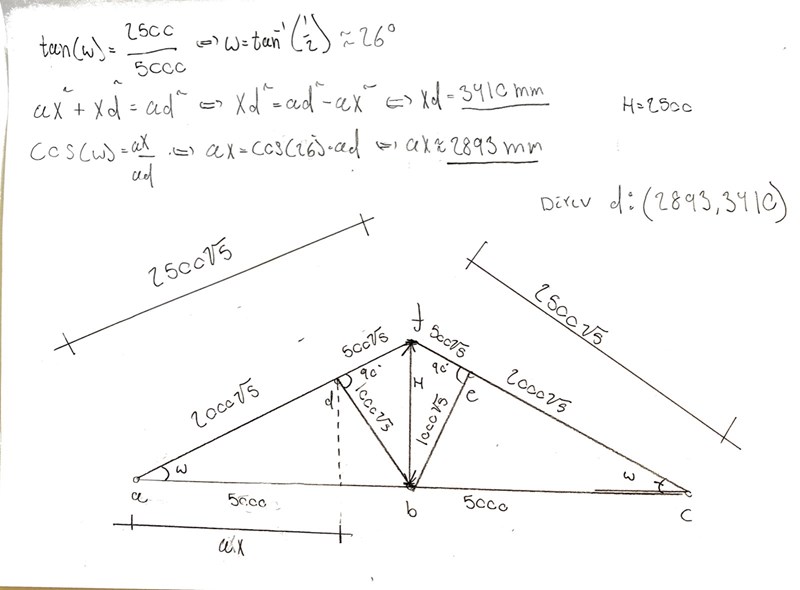 tan(w) = 2500/5000 ⇔ w = tan⁻¹(1/2) ≈ 26°
ax² + xd² = ad² ⇔ xd² = ad² - ax² ⇔ xd = 3410 mm
H = 2500
cos(w) = ax/ad ⇔ ax = cos(26°)·ad ⇔ ax ≈ 2893 mm
d: (2893, 3410)
2500√5
2500√5
f
500√5
500√5
90°
H
90°
2000√5
d
1000√5
1000√5
e
2000√5
w
w
a
5000
b
5000
c
ax